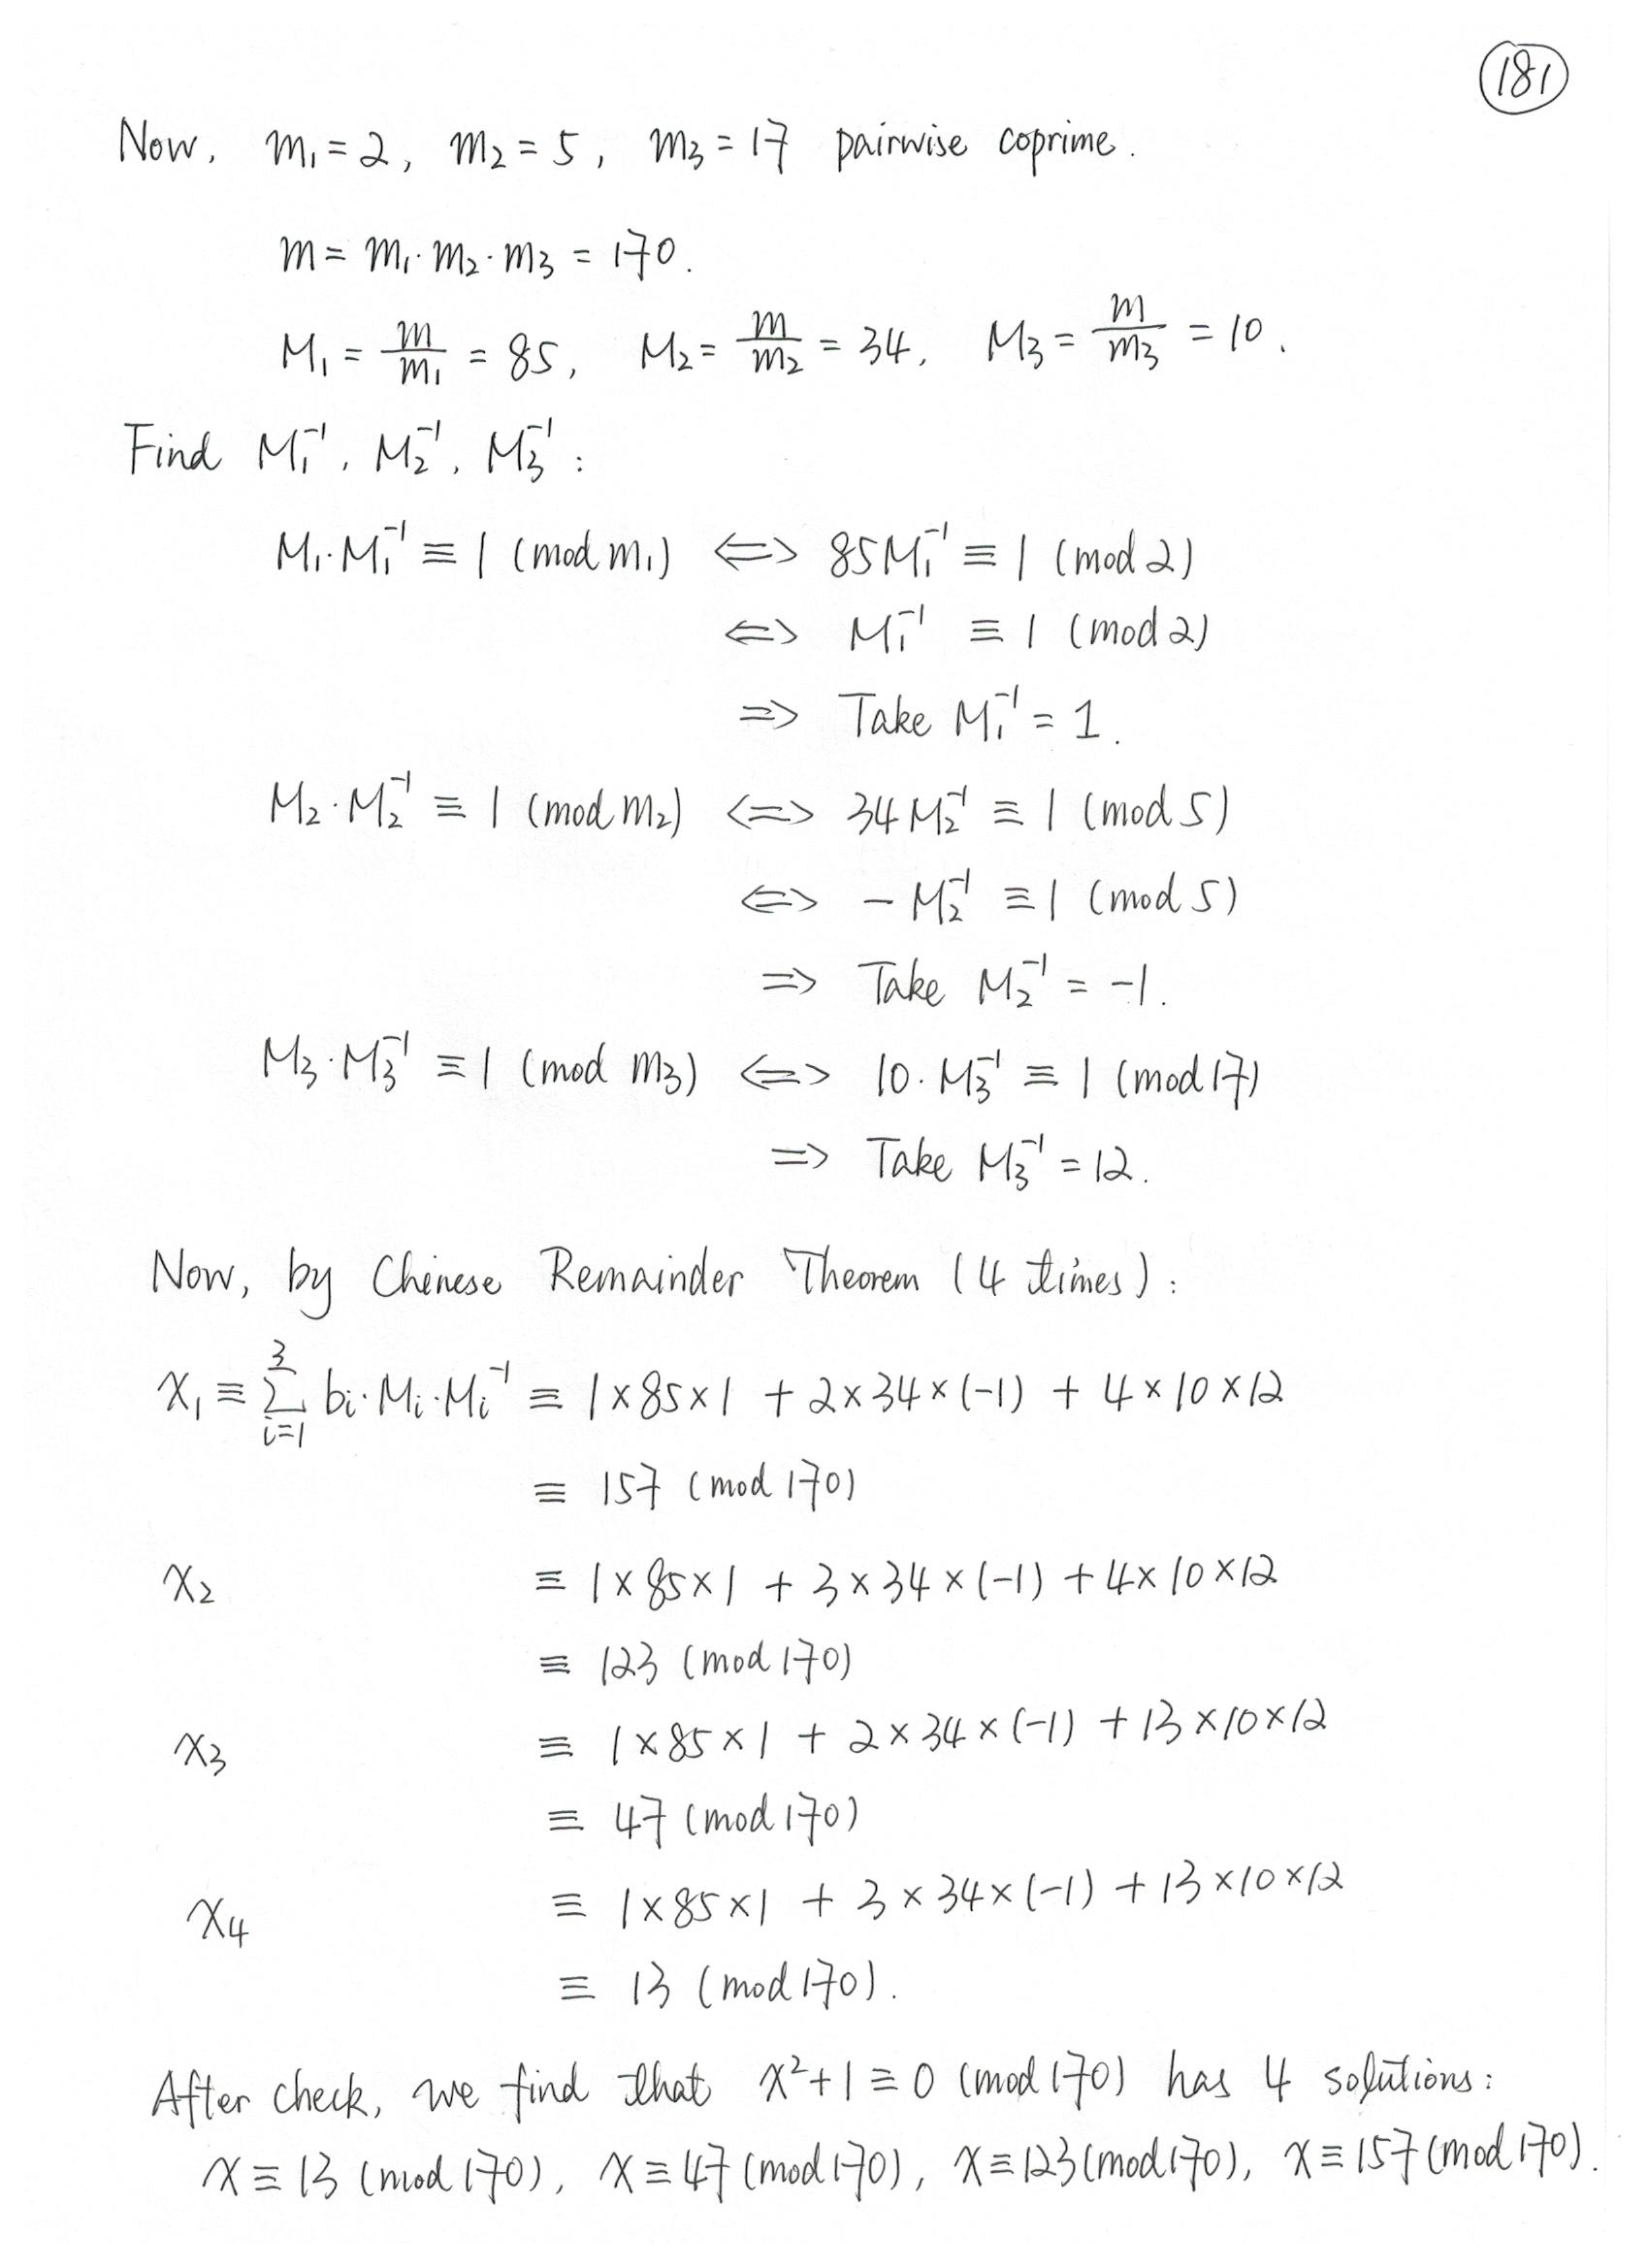 181
Now, m₁ = 2, m₂ = 5, m₃ = 17 pairwise coprime.
m = m₁·m₂·m₃ = 170.
M₁ = m/m₁ = 85, M₂ = m/m₂ = 34, M₃ = m/m₃ = 10.
Find M₁⁻¹, M₂⁻¹, M₃⁻¹ :
M₁·M₁⁻¹ ≡ 1 (mod m₁) <=> 85M₁⁻¹ ≡ 1 (mod 2)
<=> M₁⁻¹ ≡ 1 (mod 2)
=> Take M₁⁻¹ = 1.
M₂·M₂⁻¹ ≡ 1 (mod m₂) <=> 34M₂⁻¹ ≡ 1 (mod 5)
<=> -M₂⁻¹ ≡ 1 (mod 5)
=> Take M₂⁻¹ = -1.
M₃·M₃⁻¹ ≡ 1 (mod m₃) <=> 10·M₃⁻¹ ≡ 1 (mod 17)
=> Take M₃⁻¹ = 12.
Now, by Chinese Remainder Theorem (4 times) :
x₁ ≡ ∑_{i=1}^{3} bᵢ·Mᵢ·Mᵢ⁻¹ ≡ 1×85×1 + 2×34×(-1) + 4×10×12
≡ 157 (mod 170)
x₂ ≡ 1×85×1 + 3×34×(-1) + 4×10×12
≡ 123 (mod 170)
x₃ ≡ 1×85×1 + 2×34×(-1) + 13×10×12
≡ 47 (mod 170)
x₄ ≡ 1×85×1 + 3×34×(-1) + 13×10×12
≡ 13 (mod 170).
After check, we find that x²+1 ≡ 0 (mod 170) has 4 solutions:
x ≡ 13 (mod 170), x ≡ 47 (mod 170), x ≡ 123 (mod 170), x ≡ 157 (mod 170).